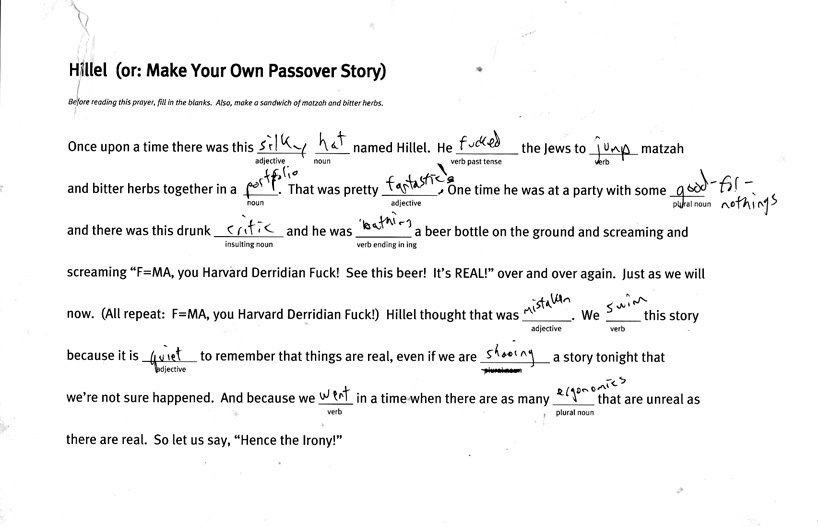 Hillel (or: Make Your Own Passover Story)
Before reading this prayer, fill in the blanks. Also, make a sandwich of matzah and bitter herbs.
Once upon a time there was this silky hat named Hillel. He fucked the Jews to jump matzah
adjective noun verb past tense verb
and bitter herbs together in a portfolio. That was pretty fantastic. One time he was at a party with some good-for-nothings
noun adjective plural noun
and there was this drunk critic and he was bathing a beer bottle on the ground and screaming and
insulting noun verb ending in ing
screaming “F=MA, you Harvard Derridian Fuck! See this beer! It's REAL!” over and over again. Just as we will
now. (All repeat: F=MA, you Harvard Derridian Fuck!) Hillel thought that was mistaken. We swim this story
adjective verb
because it is quiet to remember that things are real, even if we are shooing a story tonight that
adjective
we're not sure happened. And because we went in a time when there are as many ergonomics that are unreal as
verb plural noun
there are real. So let us say, “Hence the Irony!”